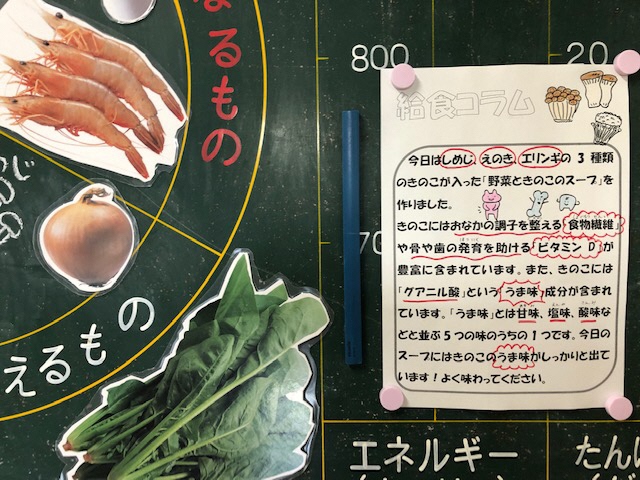 なるもの
えるもの
しめじ
800
20
70
エネルギー
たんぱ
給食コラム
今日はしめじ、えのき、エリンギの3種類
のきのこが入った「野菜ときのこのスープ」を
作りました。
きのこにはおなかの調子を整える食物繊維
や骨や歯の発育を助けるビタミンDが
豊富に含まれています。また、きのこには
「グアニル酸」という「うま味」成分が含まれ
ています。「うま味」とは甘味、塩味、酸味な
どと並ぶ5つの味のうちの1つです。今日の
スープにはきのこのうま味がしっかりと出て
います!よく味わってください。